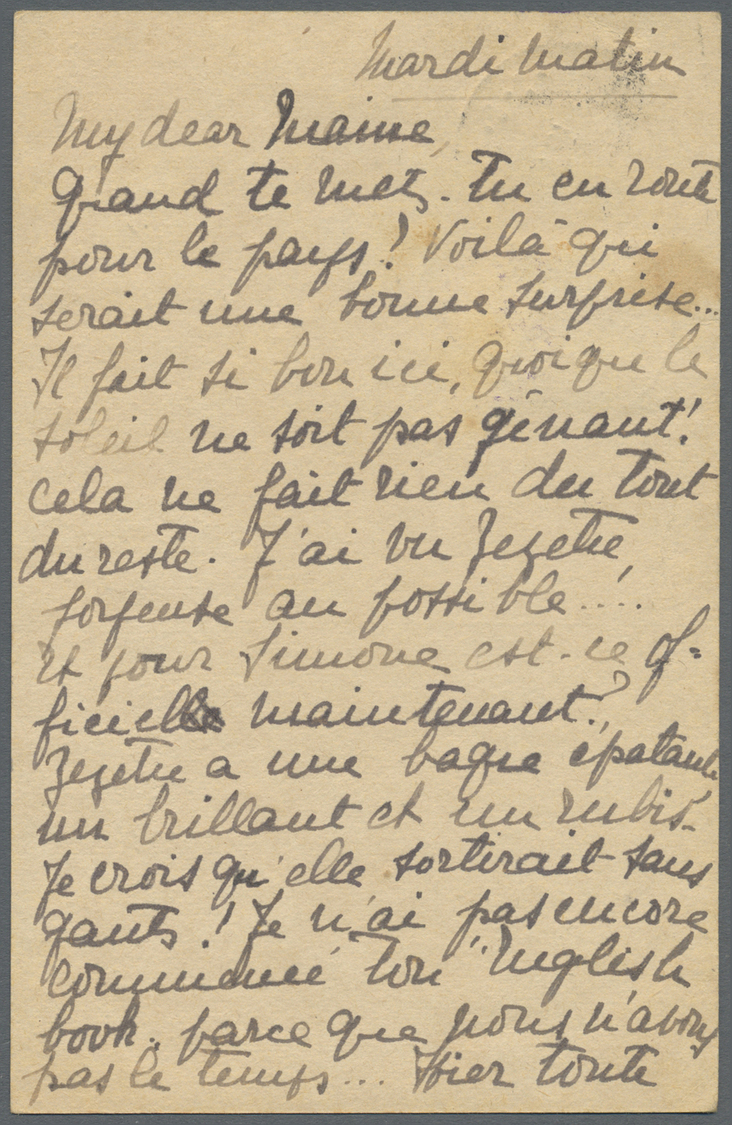 Mardi matin
My dear Maine,
Quand te mets-tu en route
pour le pays! Voilà qui
serait une bonne surprise...
Il fait si bon ici, quoique le
soleil ne soit pas gênant!
cela ne fait rien du tout
du reste. J'ai vu Zezette,
joyeuse au possible....
Et pour Simone est-ce of-
ficielle maintenant?
Zezette a une bague épatante,
un brillant et un rubis.
Je crois qu'elle sortirait sans
gants! Je n'ai pas encore
commencé ton "English
book.. parce que nous n'avons
pas le temps... Hier toute